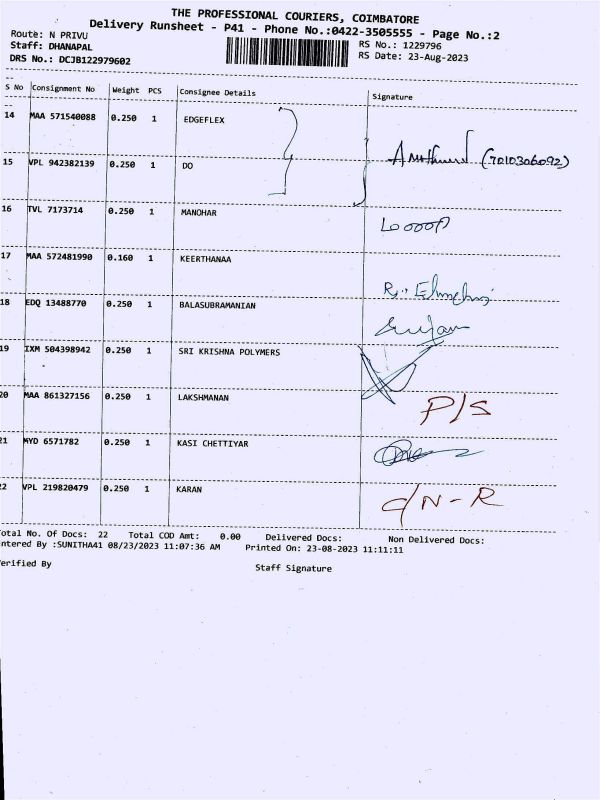 THE PROFESSIONAL COURIERS, COIMBATORE
Delivery Runsheet - P41 - Phone No.:0422-3505555 - Page No.:2
Route: N PRIVU
RS No.: 1229796
Staff: DHANAPAL
RS Date: 23-Aug-2023
DRS No.: DCJB122979602
S No Consignment No Weight PCS Consignee Details Signature
14 MAA 571540088 0.250 1 EDGEFLEX
15 VPL 942382139 0.250 1 DO (7010306092)
16 TVL 7173714 0.250 1 MANOHAR
17 MAA 572481990 0.160 1 KEERTHANAA
18 EDQ 13488770 0.250 1 BALASUBRAMANIAN
19 IXM 504398942 0.250 1 SRI KRISHNA POLYMERS
20 MAA 861327156 0.250 1 LAKSHMANAN P/S
21 MYD 6571782 0.250 1 KASI CHETTIYAR
22 VPL 219820479 0.250 1 KARAN C/N-R
otal No. Of Docs: 22 Total COD Amt: 0.00 Delivered Docs: Non Delivered Docs:
ntered By :SUNITHA41 08/23/2023 11:07:36 AM Printed On: 23-08-2023 11:11:11
erified By
Staff Signature